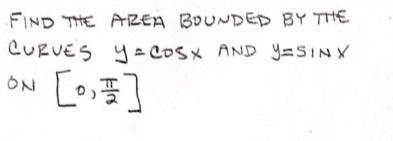 FIND THE AREA BOUNDED BY THE
CURVES y=cosx AND y=SINX
ON [0, π/2]